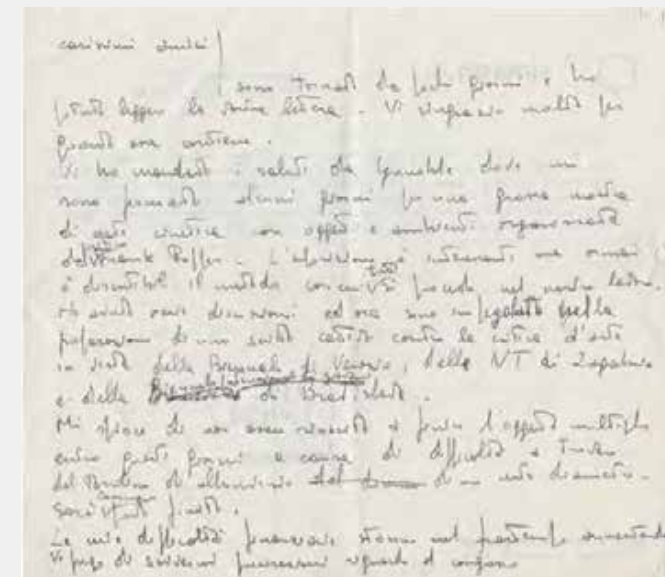 carissimi amici
sono tornato da pochi giorni e ho
potuto leggere la vostra lettera. Vi ringrazio molto per
quanto essa contiene.
Vi ho mandato i saluti da Grenoble dove mi
sono fermato alcuni giorni per una grossa mostra
di arte cinetica con oggetti e ambienti organizzata
da Frank Popper. L'esposizione è interessante ma ormai
è discutibile il metodo con cui si procede nel nostro lavoro.
Ho avuto varie discussioni ed ora sono impegolato nella
preparazione di uno scritto contro la critica d'arte
in vista della Biennale di Venezia, delle NT di Zagabria
e della di Bratislava.
Mi spiace di non essere riuscito a finire l'oggetto multiplo
entro questi giorni a causa di difficoltà a trovare
del tondino di alluminio di un certo diametro.
sarà finito.
Le mie difficoltà finanziarie stanno nel frattempo aumentando
Vi prego di scrivermi riguardo il compenso